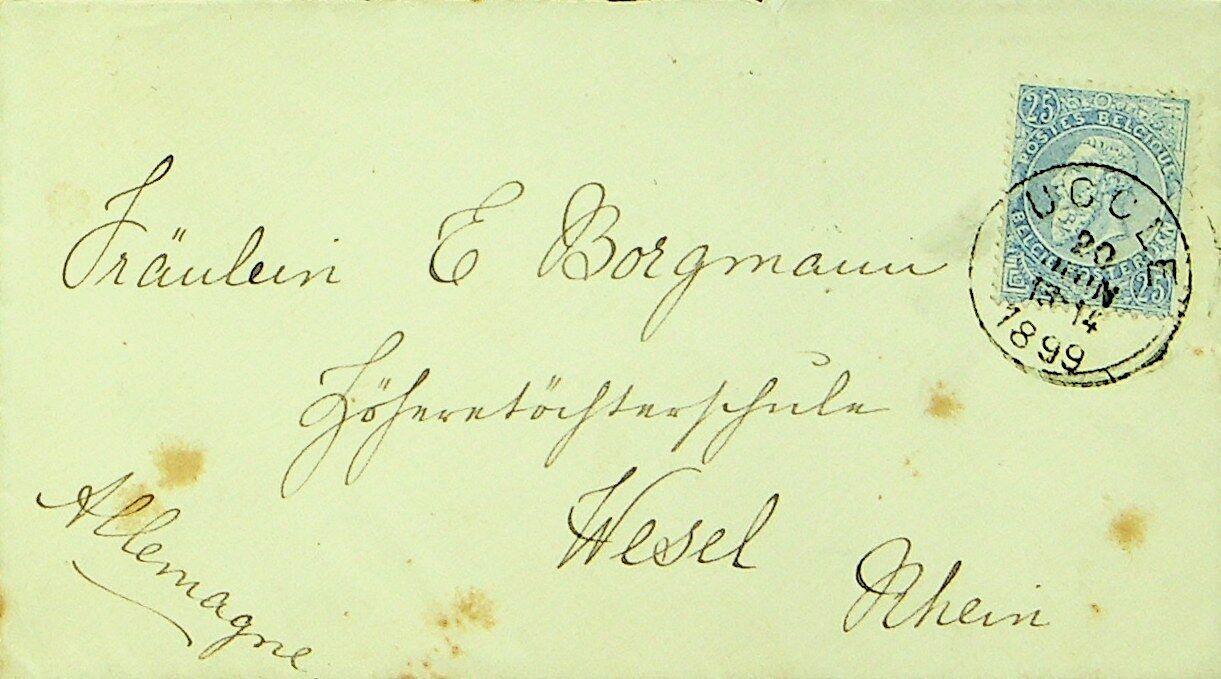 25 25
POSTES BELGIQUE
UCCLE
20
JUIN
13-14
1899
25
Fräulein E Borgmann
Höheretöchterschule
Wesel
Rhein
Allemagne